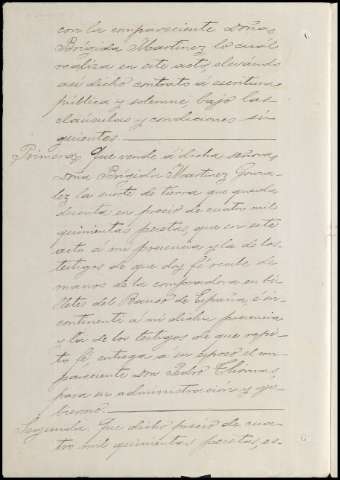 con la compareciente Doña
Brigida Martinez lo cual
realiza en este acto, elevando
a su dicho contrato á escritura
pública y solemne, bajo las
cláusulas y condiciones si-
guientes
Primera Que vende á dicha señora
Doña Brigida Martinez Gonza-
lez la suerte de tierra que queda
descrita en precio de cuatro mil
quinientas pesetas, que en este
acto á mi presencia y la de los
testigos de que doy fé recibe de
manos de la compradora en bi-
lletes del Banco de España, é in-
continente á mi dicha presencia
y la de los testigos de que repi-
to fé entrega a su esposo el com-
pareciente Don Pedro Thomas,
para su administracion y go-
bierno.
Segunda. Que dicho precio de cua-
tro mil quinientas pesetas, es-